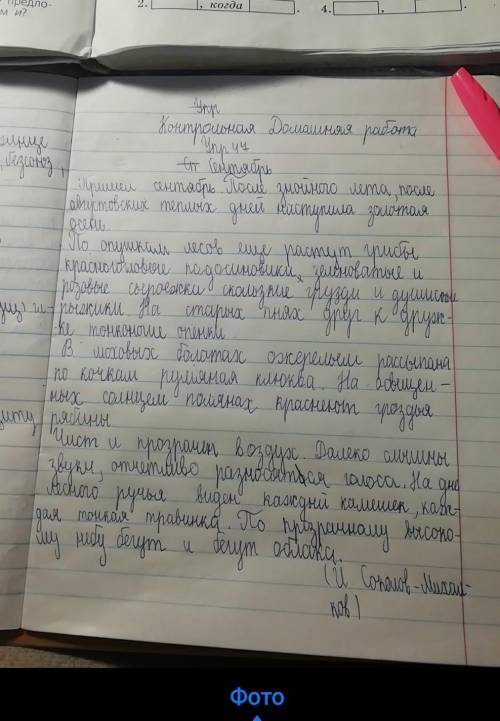 предло-
м и?
2. , когда .
4. , .
Упр
Контрольная Домашняя работа
Упр 47
Сентябрь
Пришел сентябрь. После знойного лета, после
августовских теплых дней наступила золотая
осень.
По опушкам лесов еще растут грибы
красноголовые подосиновики, зеленоватые и
розовые сыроежки скользкие грузди и душистые
рыжики. На старых пнях друг к друж-
ке тонконогие опенки
В моховых болотах ожерельем рассыпана
по кочкам румяная клюква. На освещен-
ных солнцем полянах краснеют гроздья
рябины
Чист и прозрачен воздух. Далеко слышны
звуки, отчетливо разносятся голоса. На дне
лесного ручья виден каждый камешек, каж-
дая тонкая травинка. По прозрачному высоко-
му небу бегут и бегут облака.
(И Соколов-Микит-
ков)
Фото